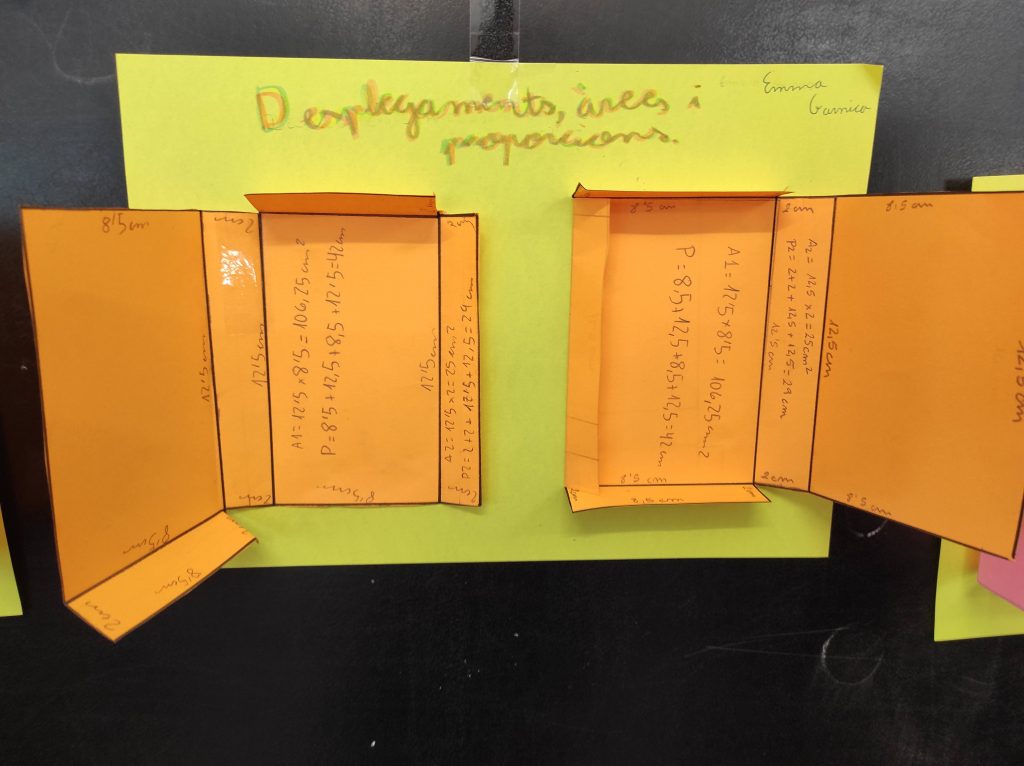 Desplegaments, àrees i
proporcions.
Emma
Garnica
8'5 cm
2cm
12'5 cm
12'5 cm
A1 = 12'5 x 8'5 = 106,25 cm²
P = 8'5 + 12,5 + 8,5 + 12'5 = 42 cm
12'5 cm
A2 = 12'5 x 2 = 25 cm²
P2 = 2+2 + 12'5 + 12,5 = 29 cm
8'5cm
2cm
8'5cm
8'5cm
2cm
8'5 cm
A1 = 12'5 x 8'5 = 106,25 cm²
P = 8,5 + 12,5 + 8,5 + 12,5 = 42 cm
8'5 cm
8,5 cm
2cm
A2 = 12,5 x 2 = 25 cm²
P2 = 2+2 + 12,5 + 12,5 = 29 cm
12'5 cm
2cm
12,5 cm
8,5 cm
8,5 cm
12,5 cm